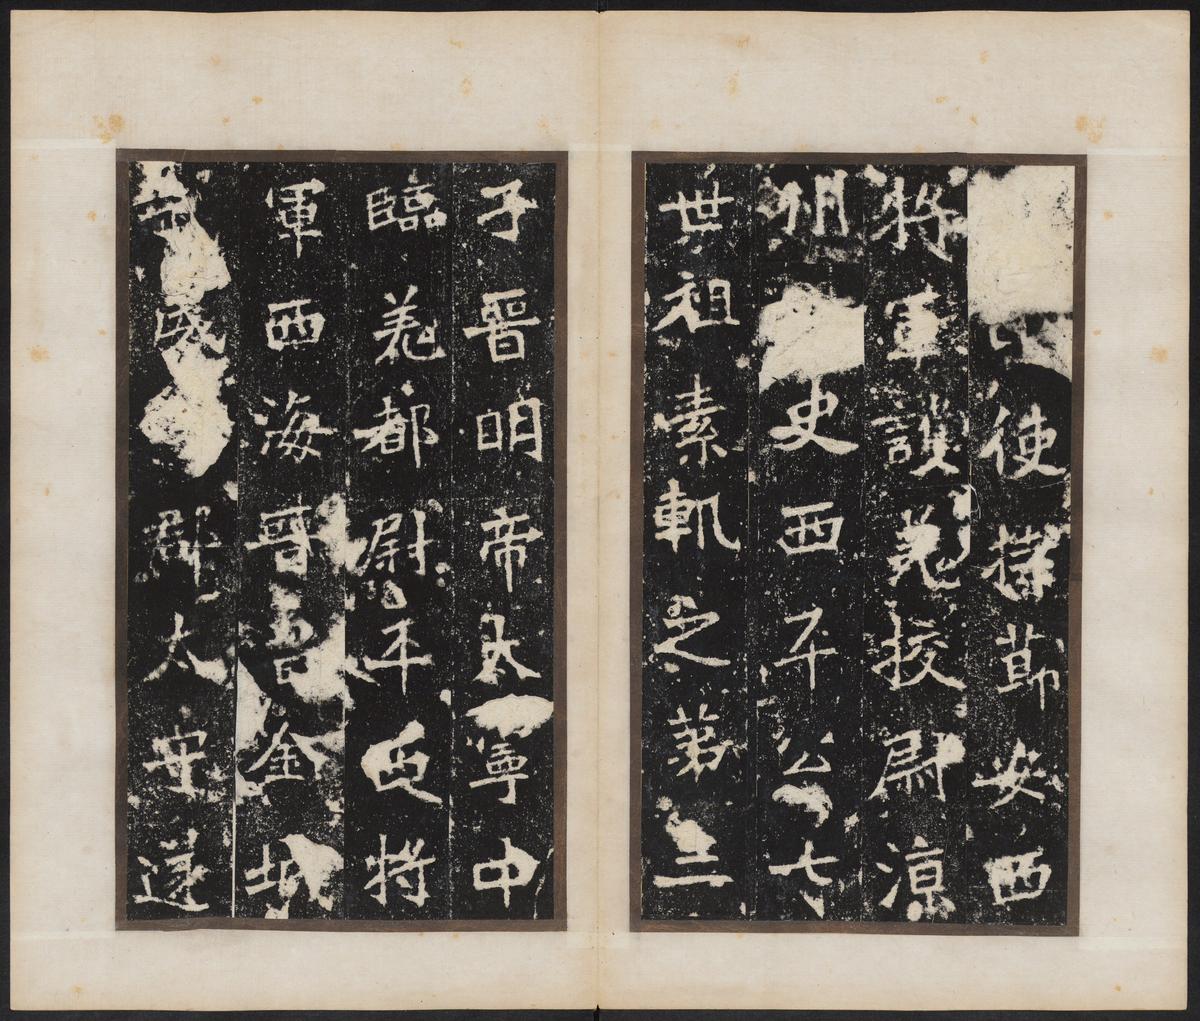 使持節安西
將軍護羌校尉涼
州史西平公七
世祖素軌之第三
子晉明帝太寧中
臨羌都尉平西將
軍西海晉昌金城
武威郡太守遂